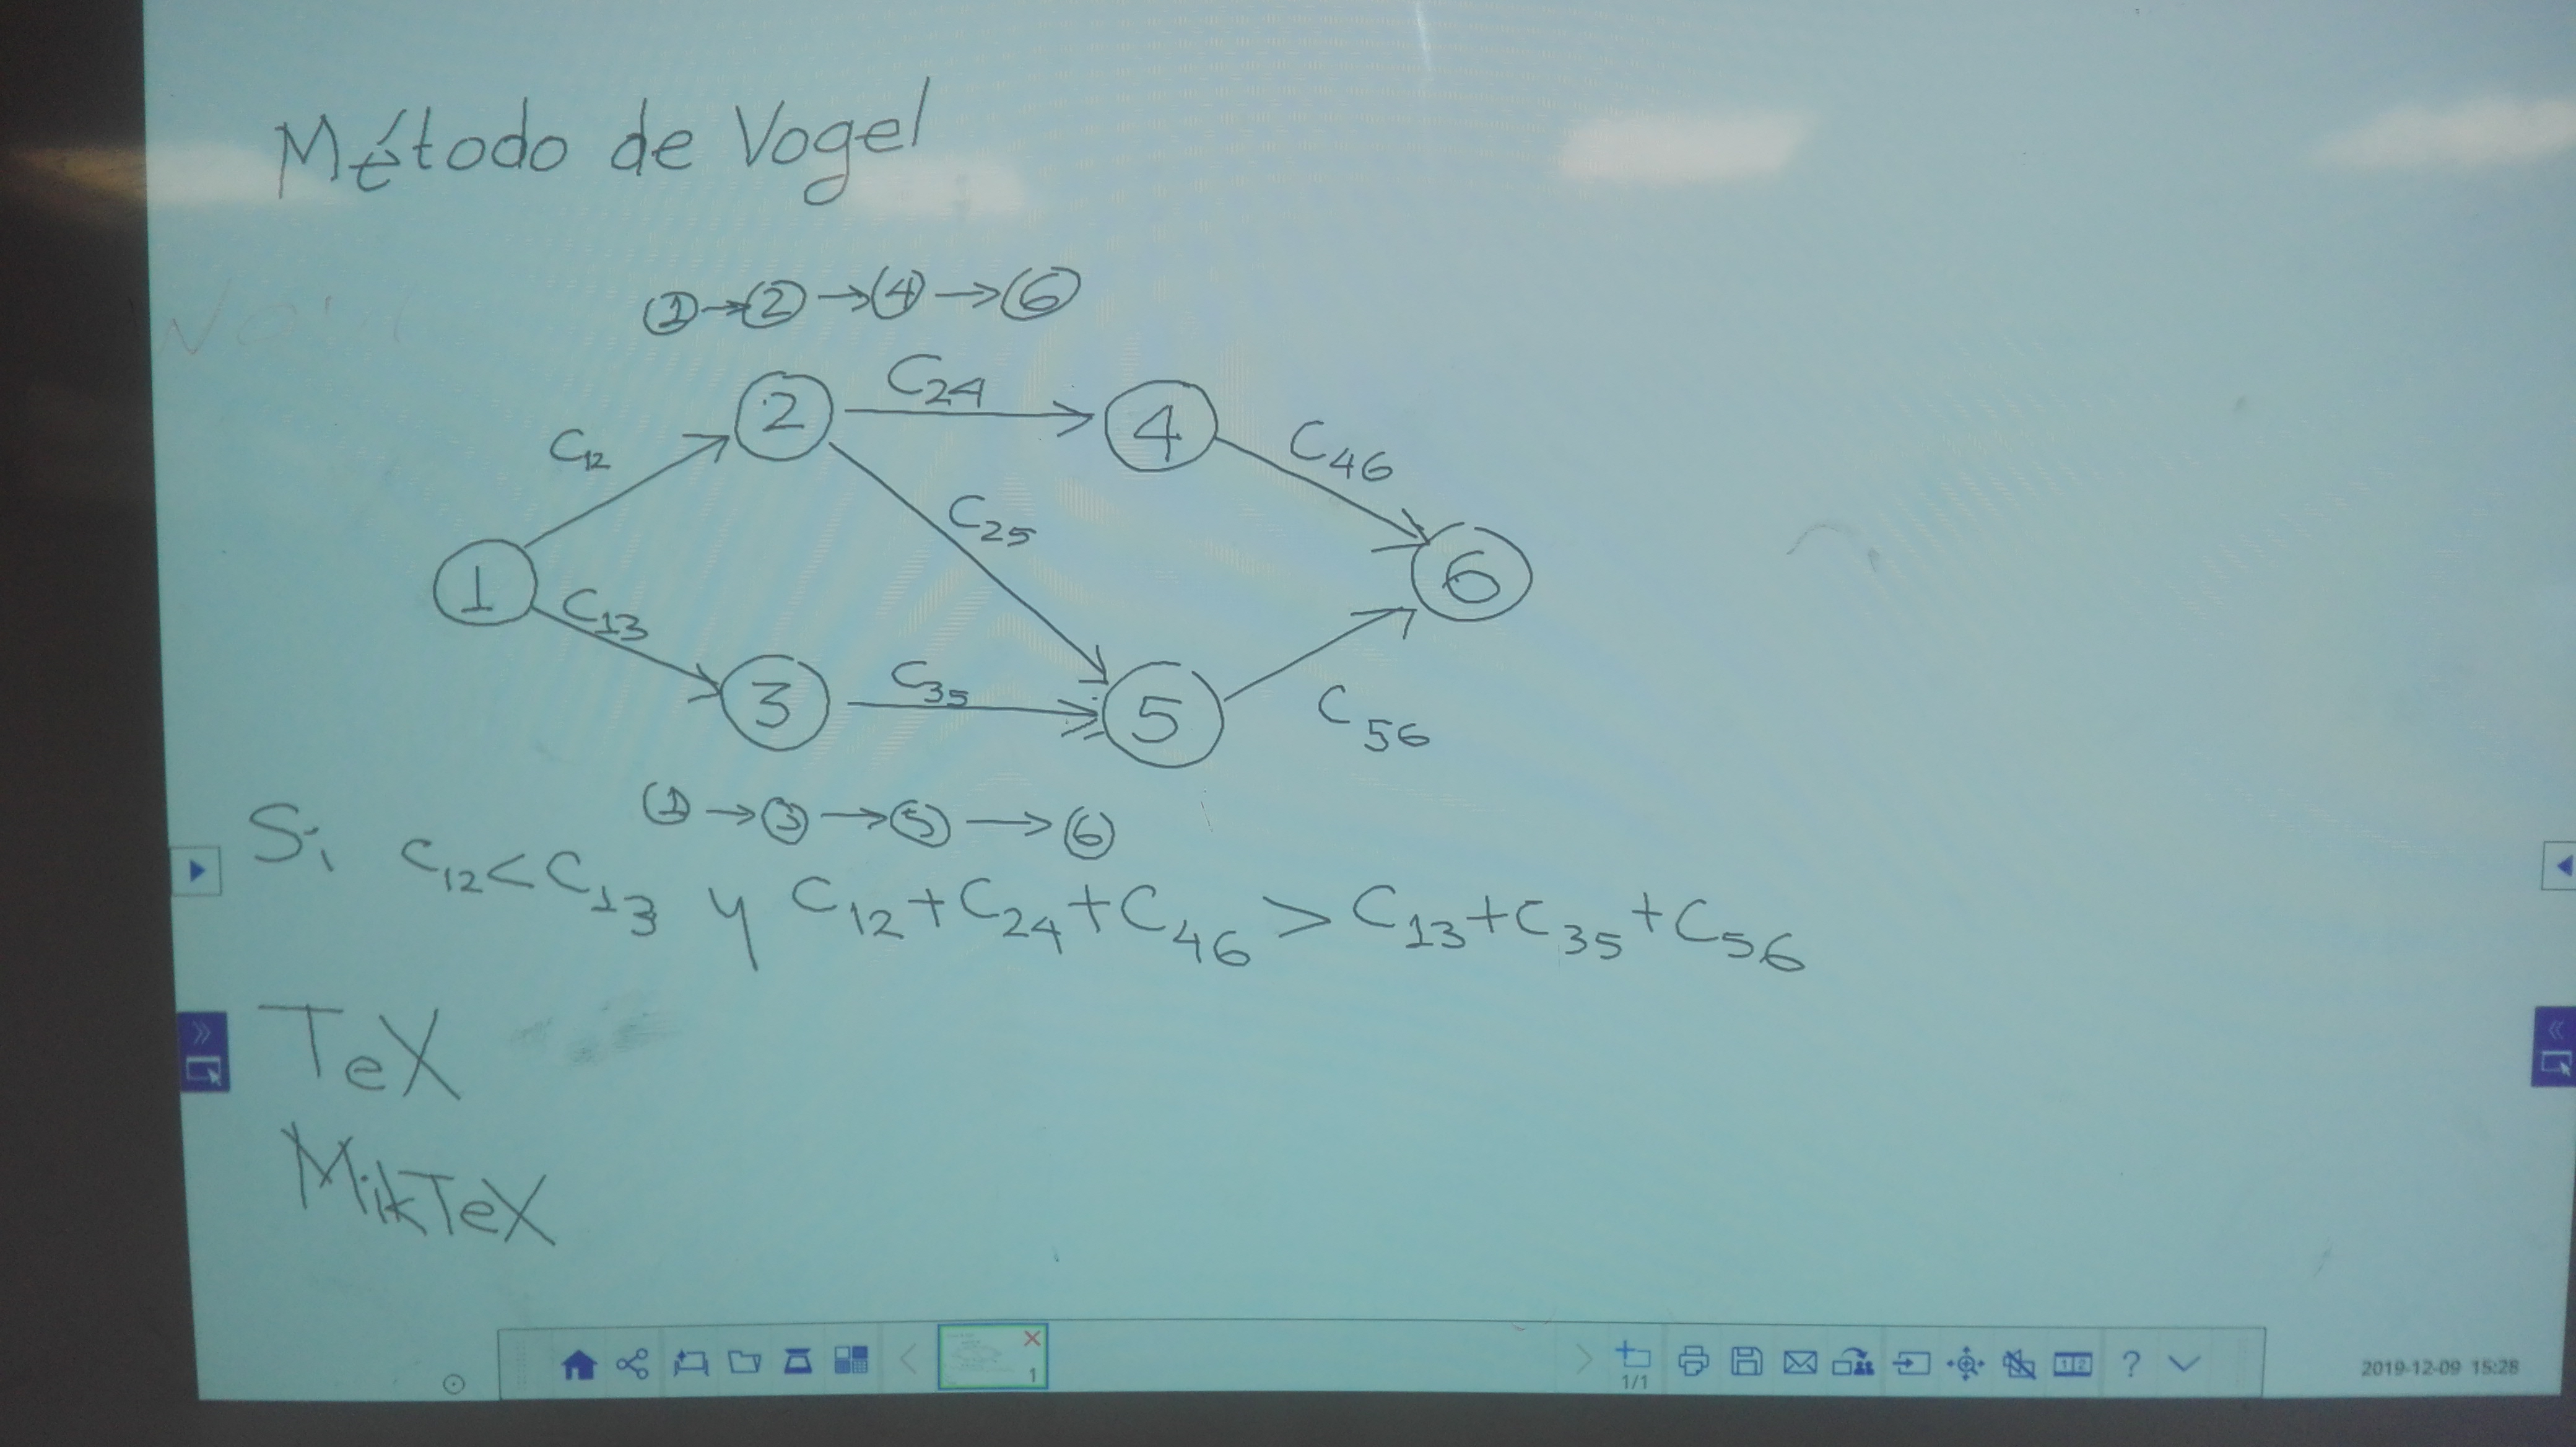 Método de Vogel
1 → 2 → 4 → 6
C24
2 4
C12 C46
C25
1 6
C13
C35
3 5
C56
1 → 3 → 5 → 6
Si C12 < C13 y C12 + C24 + C46 > C13 + C35 + C56
TeX
MikTeX
1
1/1
1 2
?
2019-12-09 15:28